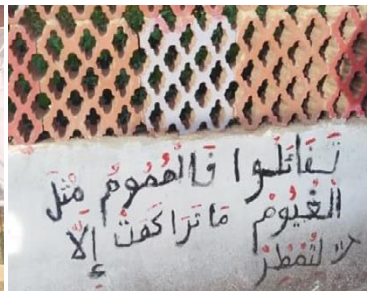 تَفَائَلُوا فَالْهُمُومُ مِثْلَ
الْغُيُومْ مَا تَرَاكَمَتْ إِلَّا
لِتُمْطِرْ